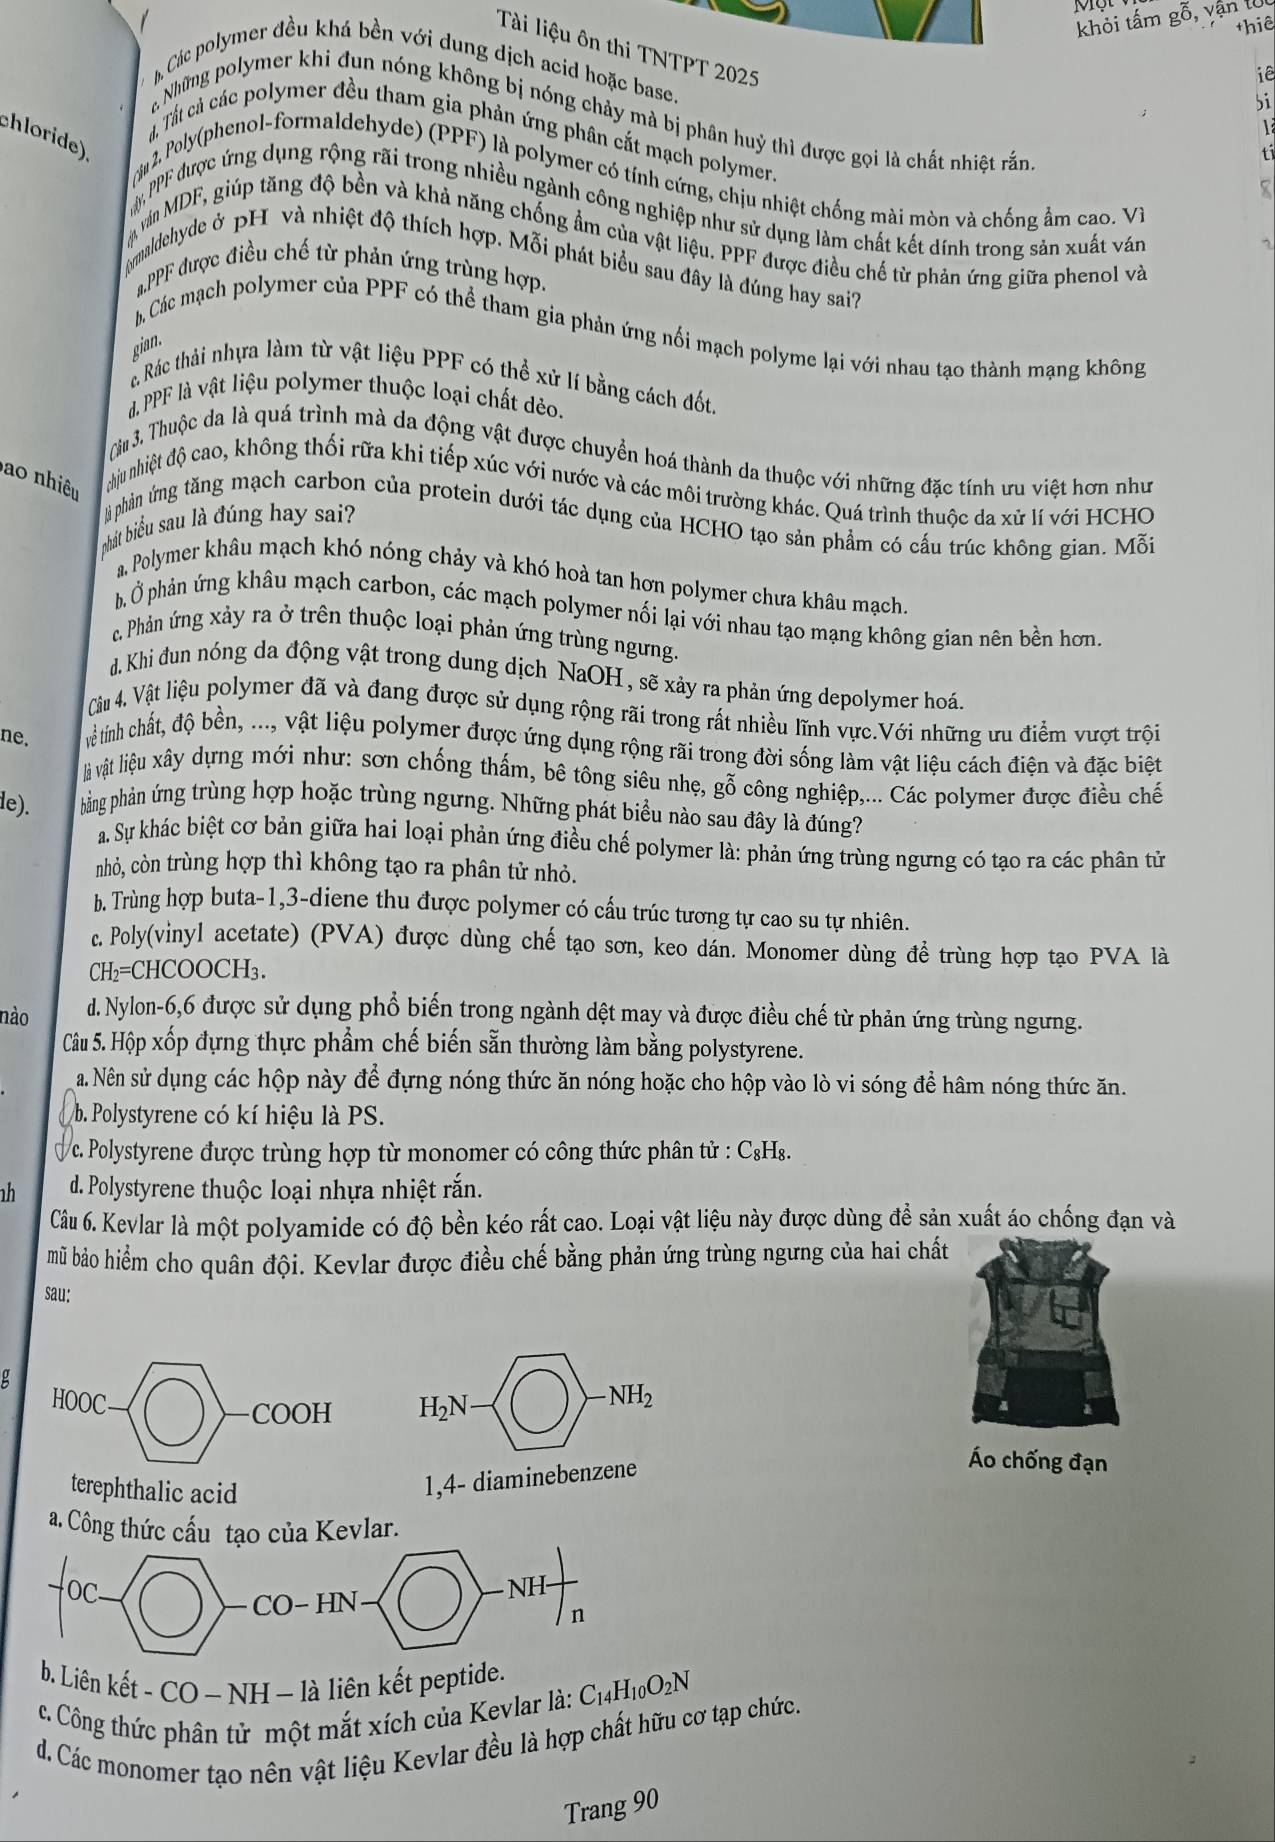 Tài liệu ôn thi TNTPT 2025
khỏi tấm gỗ, vận
thiê
b. Các polymer đều khá bền với dung dịch acid hoặc base.
c. Những polymer khi đun nóng không bị nóng chảy mà bị phân huỷ thì được gọi là chất nhiệt rắn.
d. Tất cả các polymer đều tham gia phản ứng phân cắt mạch polymer.
chloride).
Câu 2. Poly(phenol-formaldehyde) (PPF) là polymer có tính cứng, chịu nhiệt chống mài mòn và chống ẩm cao. Vì
vậy, PPF được ứng dụng rộng rãi trong nhiều ngành công nghiệp như sử dụng làm chất kết dính trong sản xuất ván
ép, ván MDF, giúp tăng độ bền và khả năng chống ẩm của vật liệu. PPF được điều chế từ phản ứng giữa phenol và
formaldehyde ở pH và nhiệt độ thích hợp. Mỗi phát biểu sau đây là đúng hay sai?
a.PPF được điều chế từ phản ứng trùng hợp.
b. Các mạch polymer của PPF có thể tham gia phản ứng nối mạch polyme lại với nhau tạo thành mạng không
gian.
c. Rác thải nhựa làm từ vật liệu PPF có thể xử lí bằng cách đốt.
d. PPF là vật liệu polymer thuộc loại chất dẻo.
Câu 3. Thuộc da là quá trình mà da động vật được chuyển hoá thành da thuộc với những đặc tính ưu việt hơn như
chịu nhiệt độ cao, không thối rữa khi tiếp xúc với nước và các môi trường khác. Quá trình thuộc da xử lí với HCHO
bao nhiêu
là phản ứng tăng mạch carbon của protein dưới tác dụng của HCHO tạo sản phẩm có cấu trúc không gian. Mỗi
phát biểu sau là đúng hay sai?
a. Polymer khâu mạch khó nóng chảy và khó hoà tan hơn polymer chưa khâu mạch.
b. Ở phản ứng khâu mạch carbon, các mạch polymer nối lại với nhau tạo mạng không gian nên bền hơn.
c. Phản ứng xảy ra ở trên thuộc loại phản ứng trùng ngưng.
d. Khi đun nóng da động vật trong dung dịch NaOH, sẽ xảy ra phản ứng depolymer hoá.
Câu 4. Vật liệu polymer đã và đang được sử dụng rộng rãi trong rất nhiều lĩnh vực.Với những ưu điểm vượt trội
ne.
về tính chất, độ bền, ..., vật liệu polymer được ứng dụng rộng rãi trong đời sống làm vật liệu cách điện và đặc biệt
là vật liệu xây dựng mới như: sơn chống thấm, bê tông siêu nhẹ, gỗ công nghiệp,... Các polymer được điều chế
de).
bằng phản ứng trùng hợp hoặc trùng ngưng. Những phát biểu nào sau đây là đúng?
a. Sự khác biệt cơ bản giữa hai loại phản ứng điều chế polymer là: phản ứng trùng ngưng có tạo ra các phân tử
nhỏ, còn trùng hợp thì không tạo ra phân tử nhỏ.
b. Trùng hợp buta-1,3-diene thu được polymer có cấu trúc tương tự cao su tự nhiên.
c. Poly(vinyl acetate) (PVA) được dùng chế tạo sơn, keo dán. Monomer dùng để trùng hợp tạo PVA là
CH₂=CHCOOCH₃.
nào
d. Nylon-6,6 được sử dụng phổ biến trong ngành dệt may và được điều chế từ phản ứng trùng ngưng.
Câu 5. Hộp xốp đựng thực phẩm chế biến sẵn thường làm bằng polystyrene.
a. Nên sử dụng các hộp này để đựng nóng thức ăn nóng hoặc cho hộp vào lò vi sóng để hâm nóng thức ăn.
b. Polystyrene có kí hiệu là PS.
c. Polystyrene được trùng hợp từ monomer có công thức phân tử : C₈H₈.
d. Polystyrene thuộc loại nhựa nhiệt rắn.
Câu 6. Kevlar là một polyamide có độ bền kéo rất cao. Loại vật liệu này được dùng để sản xuất áo chống đạn và
mũ bảo hiểm cho quân đội. Kevlar được điều chế bằng phản ứng trùng ngưng của hai chất
sau:
HOOC- -COOH H₂N- -NH₂
terephthalic acid 1,4- diaminebenzene
Áo chống đạn
a. Công thức cấu tạo của Kevlar.
OC- -CO-HN- -NH n
b. Liên kết - CO – NH – là liên kết peptide.
c. Công thức phân tử một mắt xích của Kevlar là: C₁₄H₁₀O₂N
d. Các monomer tạo nên vật liệu Kevlar đều là hợp chất hữu cơ tạp chức.
Trang 90